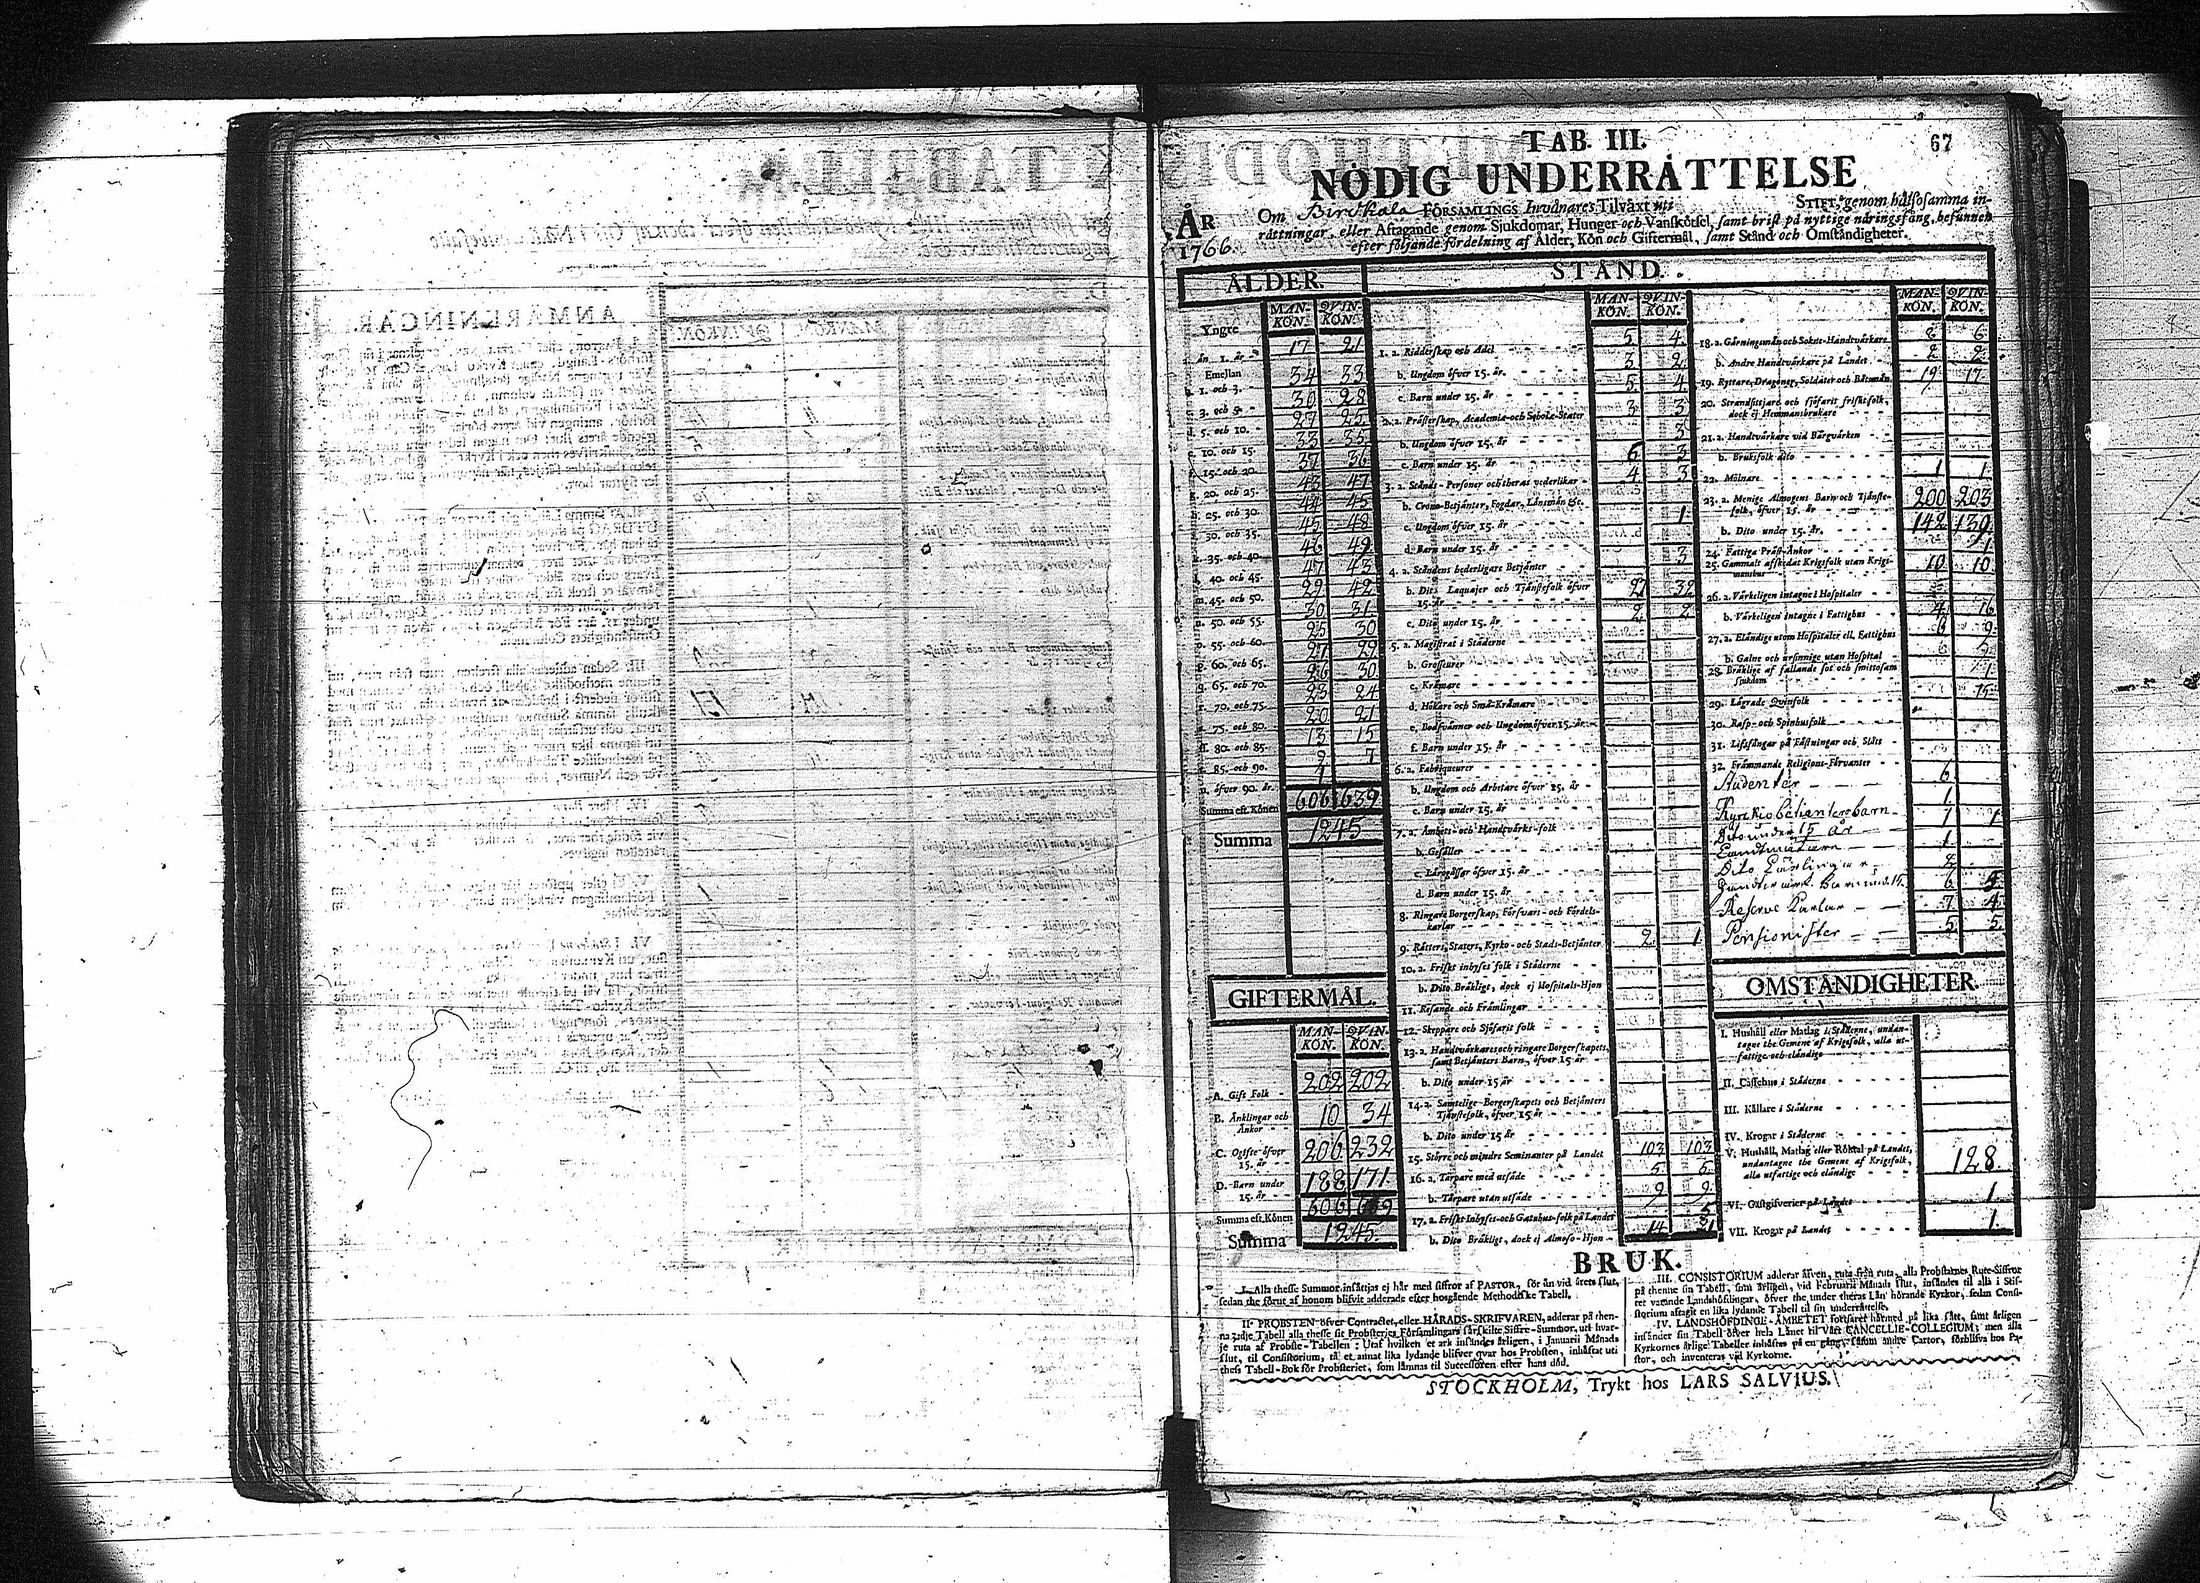 67
TAB. III.
NÖDIG UNDERRÅTTELSE
ÅR 1766.
Om Birckala FÖRSAMLINGS Invånares Tilväxt uti STIFT, genom hälsosamma in-
råttningar, eller Aftagande genom Sjukdomar, Hunger och Vanskötsel, samt brist på nyttige näringsfång, befunnen
efter följande fördelning af Ålder, Kön och Giftermål, samt Stånd och Omståndigheter.
ÅLDER.
MAN-KÖN. QVIN-KÖN.
Yngre
än 1. år 17 21
Emellan
b. 1. och 3. 34 33
c. 3. och 5. 30 28
d. 5. och 10. 27 25
e. 10. och 15. 33 35
f. 15. och 20. 37 36
g. 20. och 25. 43 47
h. 25. och 30. 44 45
30. och 35. 45 48
35. och 40. 46 49
l. 40. och 45. 47 43
m. 45. och 50. 29 42
n. 50. och 55. 30 31
o. 55. och 60. 25 30
p. 60. och 65. 27 29
q. 65. och 70. 26 30
r. 70. och 75. 23 24
s. 75. och 80. 20 21
ſſ. 80. och 85. 13 15
t. 85. och 90. 9 7
u. öfver 90. år. 1
Summa eft. Könen 606 639
Summa 1245
GIFTERMÅL.
MAN-KÖN. QVIN-KÖN.
A. Gift Folk 202 202
B. Änklingar och
Änkor 10 34
C. Ogifte öfver
15. år 206 232
D. Barn under
15. år 188 171
Summa eft. Könen 606 639
Summa 1245.
STÅND.
MAN-KÖN. QVIN-KÖN.
1. a. Ridderskap och Adel 5 4
b. Ungdom öfver 15. år. 3 2
c. Barn under 15. år 5 4
2. a. Prästerskap, Academiæ- och Scholæ-Stater 3 3
b. Ungdom öfver 15. år 3
c. Barn under 15. år 6 3
3. a. Stånds-Personer och theras vederlikar 4 3
b. Crono-Betjänter, Fogdar, Länsmän &c.
c. Ungdom öfver 15. år 1
d. Barn under 15. år
4. a. Ståndens hederligare Betjänter 3
b. Dito Laquajer och Tjänstefolk öfver
15. år 21 32
c. Dito under 15. år 2 2
5. a. Magistrat i Städerne
b. Grosseurer
c. Krämare
d. Hökare och Små-Krämare
e. Bodsvänner och Ungdom öfver 15. år.
f. Barn under 15. år
6. a. Fabriqueurer
b. Ungdom och Arbetare öfver 15. år
c. Barn under 15. år
7. a. Ämbets- och Handtvärks-folk
b. Gesäller
c. Lärogåssar öfver 15. år
d. Barn under 15. år
8. Ringare Borgerskap, Försvars- och Fördels-
karlar
9. Rätters, Staters, Kyrko- och Stads-Betjänter 2 1
10. a. Friskt inhyses folk i Städerne
b. Dito Bräkligt, dock ej Hospitals-Hjon
11. Resande och Främlingar
12. Skeppare och Sjöfarit folk
13. a. Handtvärkares och ringare Borgerskapets,
samt Betjänters Barn, öfver 15 år
b. Dito under 15 år
14. a. Samtelige Borgerskapets och Betjänters
Tjänstefolk, öfver 15 år
b. Dito under 15 år
15. Större och mindre Seminanter på Landet 103 103
16. a. Torpare med utsäde 5 5
b. Torpare utan utsäde 9 9
17. a. Friskt Inhyses- och Gatuhus-folk på Landet
b. Dito Bräkligt, dock ej Almoso-Hjon 14 21
MAN-KÖN. QVIN-KÖN.
18. a. Gårningsmän och Sokne-Handtvärkare 8 6
b. Andre Handtvärkare på Landet 2 2
19. Ryttare, Dragoner, Soldater och Båtsmän 19 17
20. Strandsittjare och sjöfarit friskt folk,
dock ej Hemmansbrukare
21. a. Handtvärkare vid Bärgvärken
b. Bruksfolk dito
22. Mölnare 1 1
23. a. Menige Almogens Barn och Tjänste-
folk, öfver 15. år 200 203
b. Dito under 15. år. 142 139
24. Fattiga Präst-Änkor 1
25. Gammalt afskedat Krigsfolk utan Krigs-
mansbus 10 10
26. a. Värkeligen intagne i Hospitaler
b. Värkeligen intagne i Fattighus 4 16
27. a. Eländige utom Hospitaler ell. Fattighus 6 9
b. Galne och ursinnige utan Hospital
28. Bräklige af fallande sot och smittosam
sjukdom 1
29. Lägrade Qvinfolk 15
30. Rasp- och Spinhusfolk
31. Lifsfångar på Fästningar och Slått
32. Främmande Religions-Förvanter
Studenter 6
Kyrkiobetienters barn 1
Dito under 15 år 1 1
1
Dito 2
Barn und. 15. 6 5
Reserve Karlar 7 4
Pensionister 5 5
OMSTÅNDIGHETER.
I. Hushåll eller Matlag i Städerne, undan-
tagne the Gemene af Krigsfolk, alla ut-
fattige och eländige
II. Caffehus i Städerne
III. Källare i Städerne
IV. Krogar i Städerne
V. Hushåll, Matlag eller Röktal på Landet,
undantagne the Gemene af Krigsfolk,
alla utfattige och eländige 128
VI. Gästgifverier på Landet 1
VII. Krogar på Landet 1.
BRUK.
I. Alla thesse Summor insättjas ej här med siffror af PASTOR, för än vid årets slut,
sedan the förut af honom blifvit adderade efter hosgående Methodiske Tabell.
II. PROBSTEN öfver Contractet, eller HÄRADS-SKRIFVAREN, adderar på then-
na 3:dje Tabell alla thesse sit Probsteries Församlingars särskilte Siffre-Summor, uti hvar-
je ruta af Probste-Tabellen: Utaf hvilken et ark insändes årligen, i Januarii Månads
slut, til Consistorium, tå et annat lika lydande blifver qvar hos Probsten, inhäftat uti
thess Tabell-Bok för Probsteriet, som lämnas til Successoren efter hans död.
III. CONSISTORIUM adderar äfven, ruta från ruta, alla Probstarnes Rute-Siffror
på thenne sin Tabell, som årligen, vid Februarii Månads slut, insändes til alla i Stif-
tet varande Landshöfdingar, öfver the under theras Län hörande Kyrkor, sedan Consi-
storium aftagit en lika lydande Tabell til sin underrättelse.
IV. LANDSHÖFDINGE-ÄMBETET fortfarer härmed på lika sätt, samt årligen
insänder sin Tabell öfver hela Länet til Vårt CANCELLIE-COLLEGIUM; men alla
Kyrkornes årlige Tabeller inhäftas på en gång, såsom andre Cartor, förblifva hos Pa-
stor, och inventeras vid Kyrkorne.
STOCKHOLM, Trykt hos LARS SALVIUS.